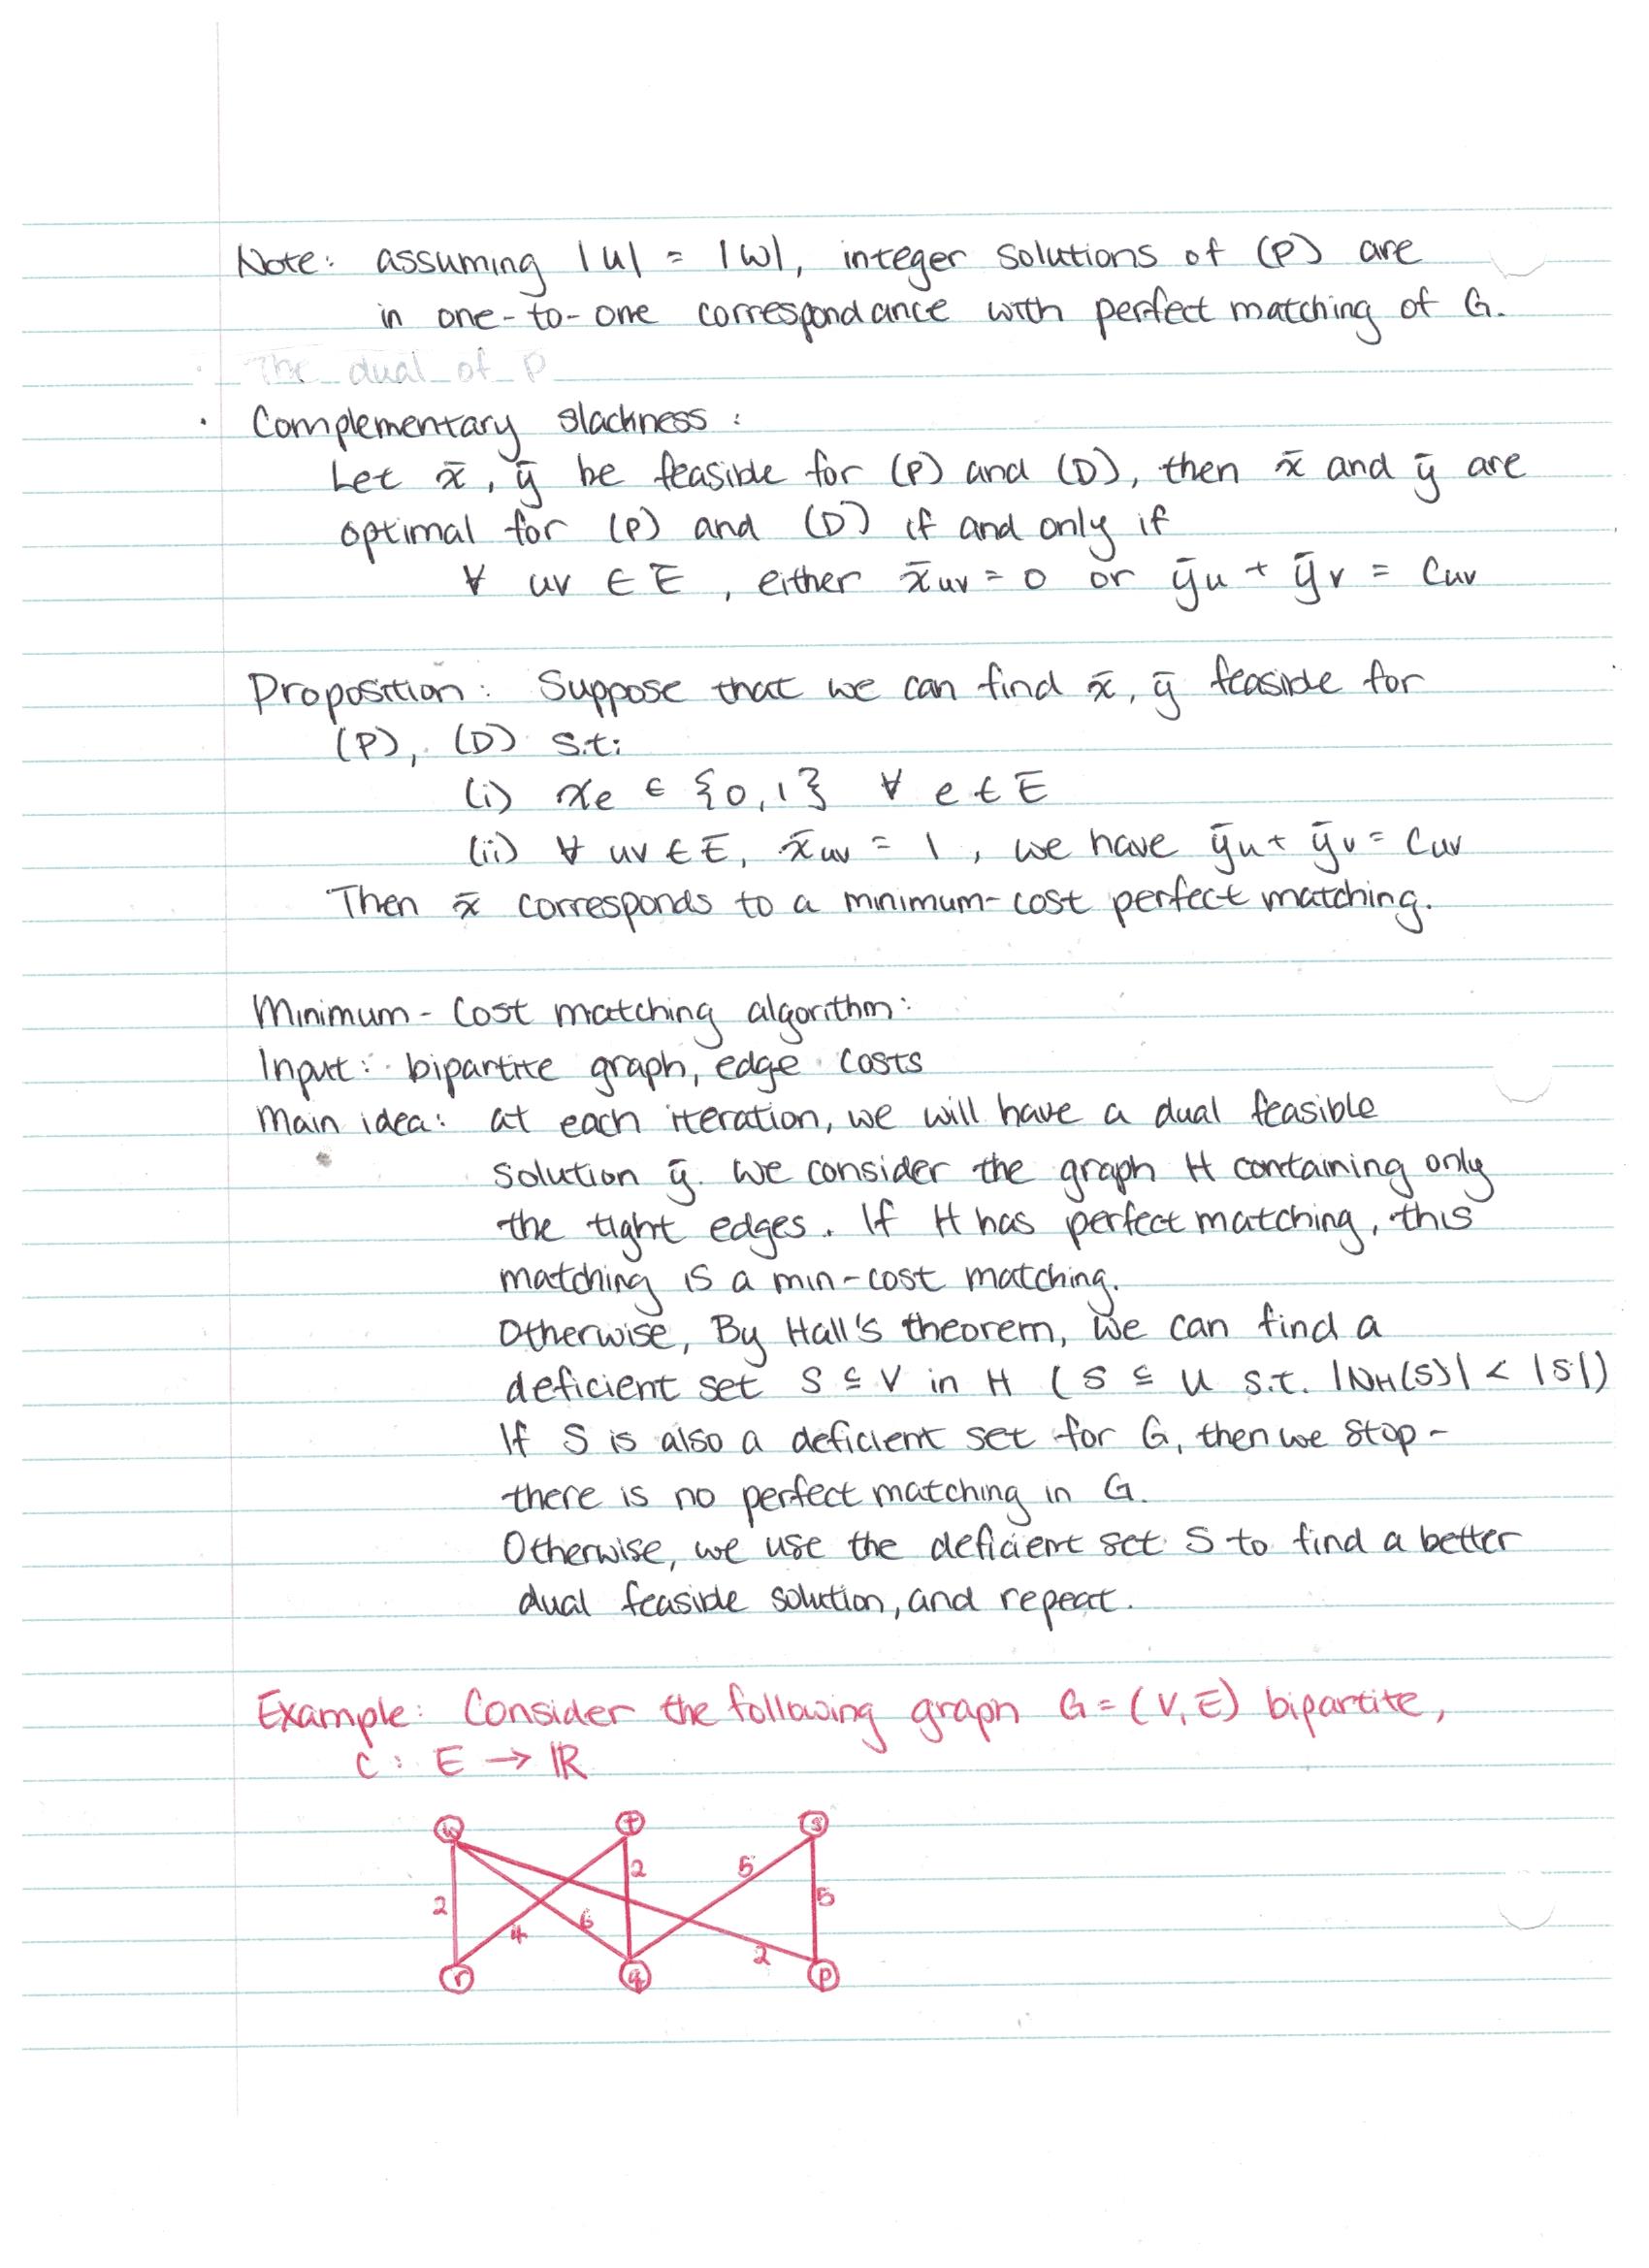 Note: assuming |U| = |W|, integer solutions of (P) are
in one-to-one correspondance with perfect matching of G.
The dual of P
· Complementary slackness:
Let x̄, ȳ be feasible for (P) and (D), then x̄ and ȳ are
optimal for (P) and (D) if and only if
∀ uv ∈ E, either x̄uv = 0 or ȳu + ȳv = Cuv
Proposition: Suppose that we can find x̄, ȳ feasible for
(P), (D) s.t:
(i) xe ∈ {0,1} ∀ e ∈ E
(ii) ∀ uv ∈ E, x̄uv = 1, we have ȳu + ȳv = Cuv
Then x̄ corresponds to a minimum-cost perfect matching.
Minimum-Cost matching algorithm:
Input: bipartite graph, edge costs
Main idea: at each iteration, we will have a dual feasible
solution ȳ. We consider the graph H containing only
the tight edges. If H has perfect matching, this
matching is a min-cost matching.
Otherwise, By Hall's theorem, we can find a
deficient set S ⊆ V in H (S ⊆ U s.t. |NH(S)| < |S|)
If S is also a deficient set for G, then we stop-
there is no perfect matching in G.
Otherwise, we use the deficient set S to find a better
dual feasible solution, and repeat.
Example: Consider the following graph G=(V,E) bipartite,
C: E → ℝ
t s
2 5
2 5
4 6 2
r q p